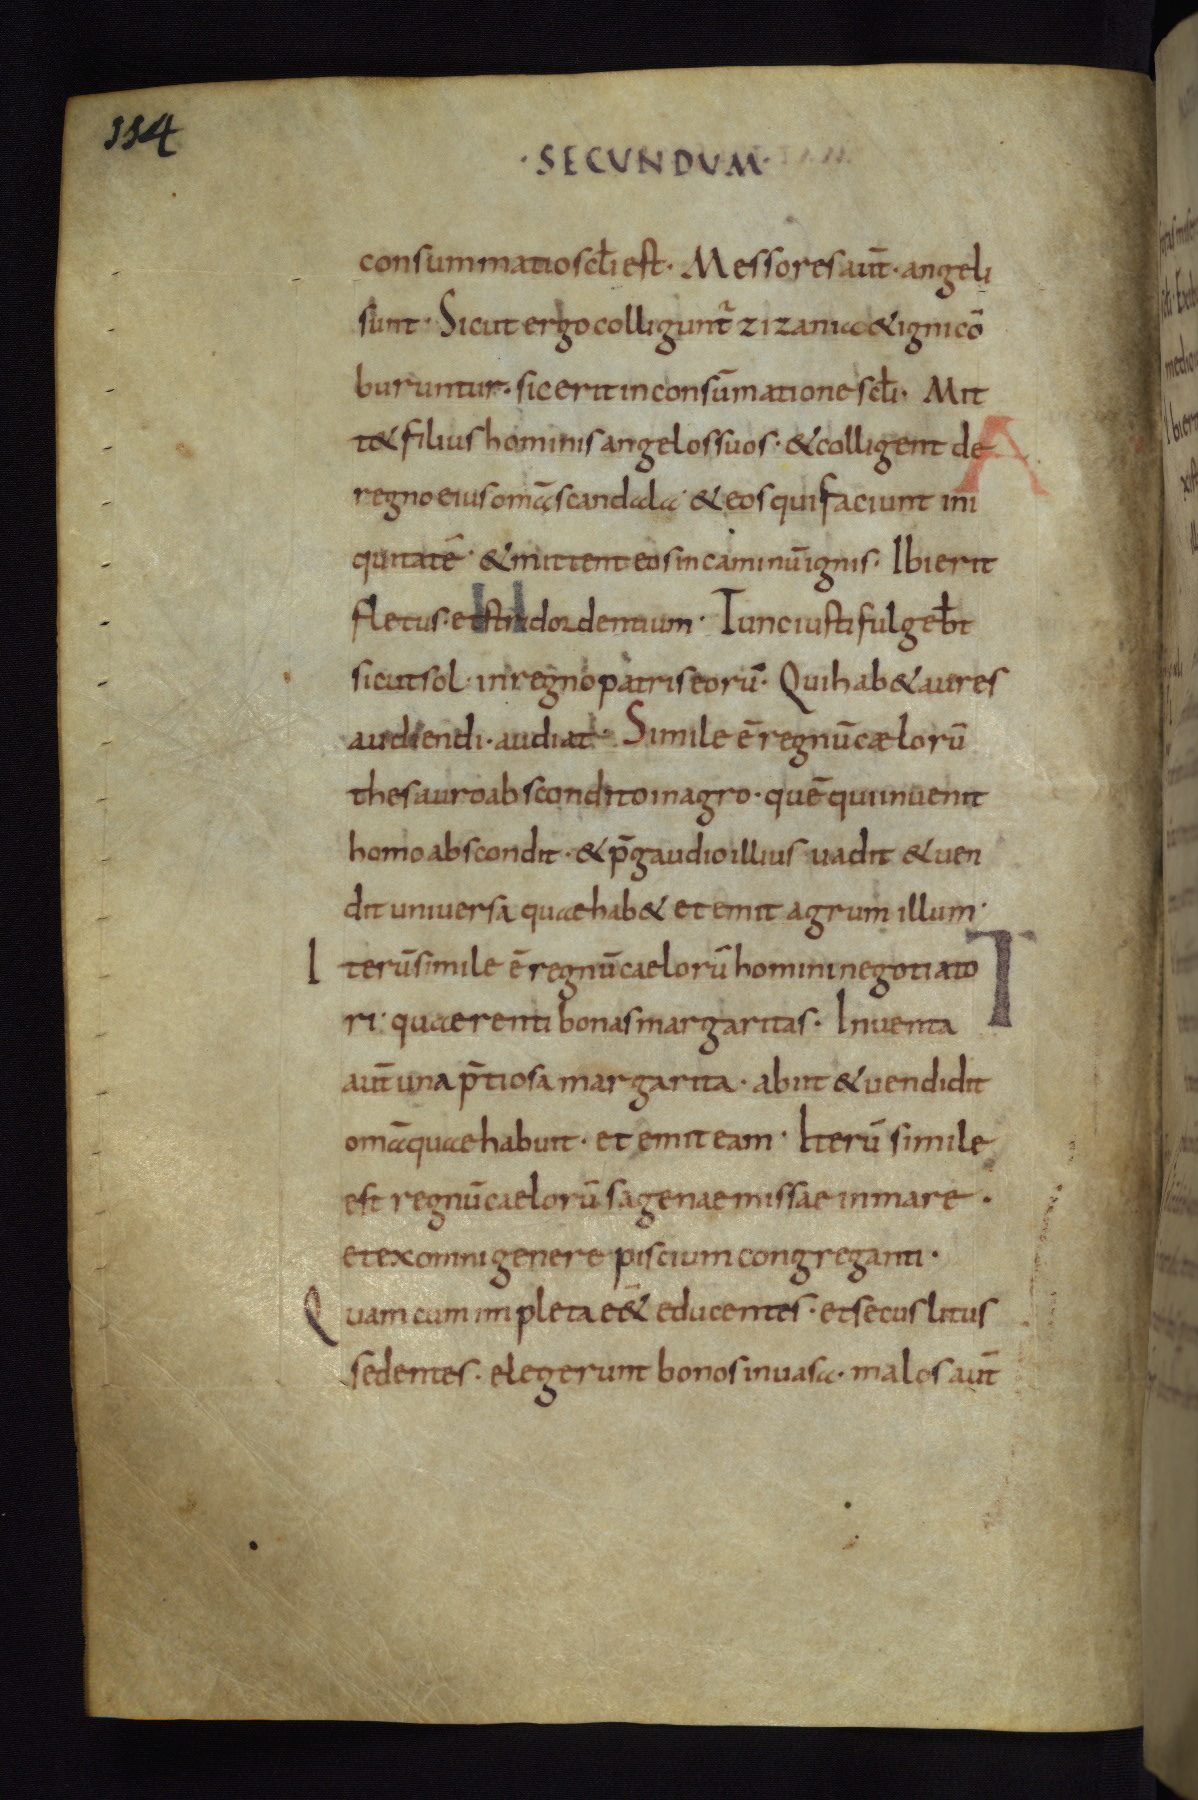 114
· SECUNDUM ·
consummatio scłi est · Messores aut̄ · angeli
sunt · Sicut ergo colligunt᷑ zizania & igni cō
buruntur · sic erit in consūmatione scłi · Mit
t& filius hominis angelos suos · & colligent de
regno eius omā scandala · & eos qui faciunt ini
quitatē · & mittent eos in caminū ignis · Ibi erit
fletus · et stridor dentium · Tunc iusti fulgeb̄t
sicut sol · in regno patris eorū · Qui hab& aures
audiendi · audiat · Simile ē regnū cælorū
thesauro abscondito in agro · quē qui inuenit
homo abscondit · & p̄ gaudio illius uadit & uen
dit universa quae hab& et emit agrum illum ·
Iterū simile ē regnū caelorū homini negotiato
ri · quaerenti bonas margaritas · Inuenta
aut̄ una p̄tiosa margarita · abiit & vendidit
omā quae habuit · et emit eam · Iterū simile
est regnū caelorū sagenae missae in mare ·
et ex omni genere piscium congreganti ·
Quam cum impleta eē& educentes · et secus litus
sedentes · elegerunt bonos in uasa · malos aut̄